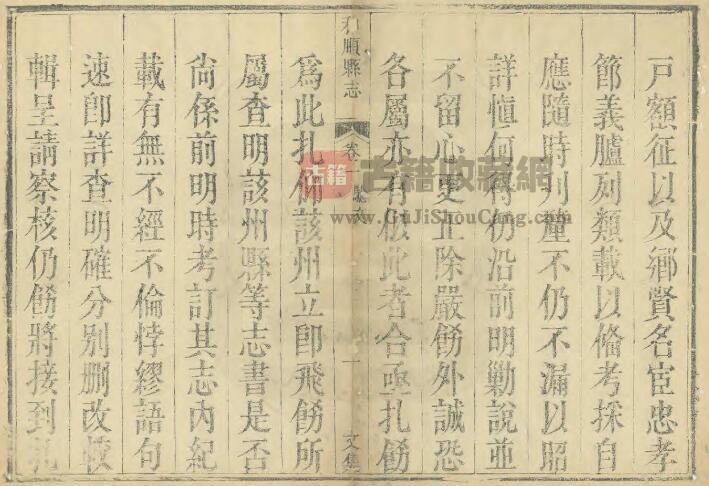 戸額征以及鄉賢名宦忠孝
節義臚列類載以俻考採自
應隨時刋 不仍不漏以昭
詳愼何得仍沿前明勦說並
不留心更正除嚴飭外誠恐
各屬亦有似此者合亟扎飭
和順縣志 卷 一 文集
為此扎仰該州立即飛飭所
屬查明該州縣等志書是否
尚係前明時考訂其志內紀
載有無不經不倫悖繆語句
速卽詳查明確分别刪改
輯呈請察核仍飭將接到
古籍 古籍收藏網
www.GuJiShouCang.com